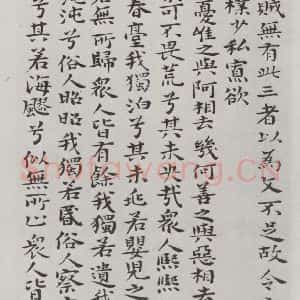 賊無有此三者以為文不足故令
樸少私寡欲
憂唯之與阿相去幾何善之與惡相去
可不畏荒兮其未央哉衆人熙熙
春臺我獨泊兮其未兆若嬰兒之
若無所歸衆人皆有餘我獨若遺我
沌兮俗人昭昭我獨若昏俗人察
兮其若海飂兮似無所止衆人皆
Shufawang.cn